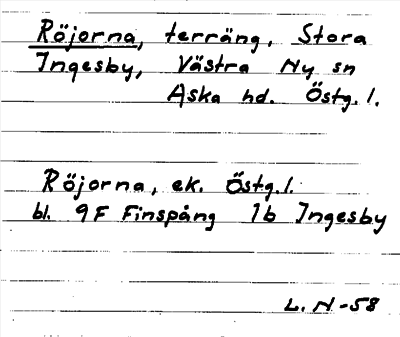 Röjorna, terräng, Stora
Ingesby, Västra Ny sn
Aska hd. Östg. l.
Röjorna, ek. Östg. l.
bl. 9F Finspång 1b Ingesby
L. N-58